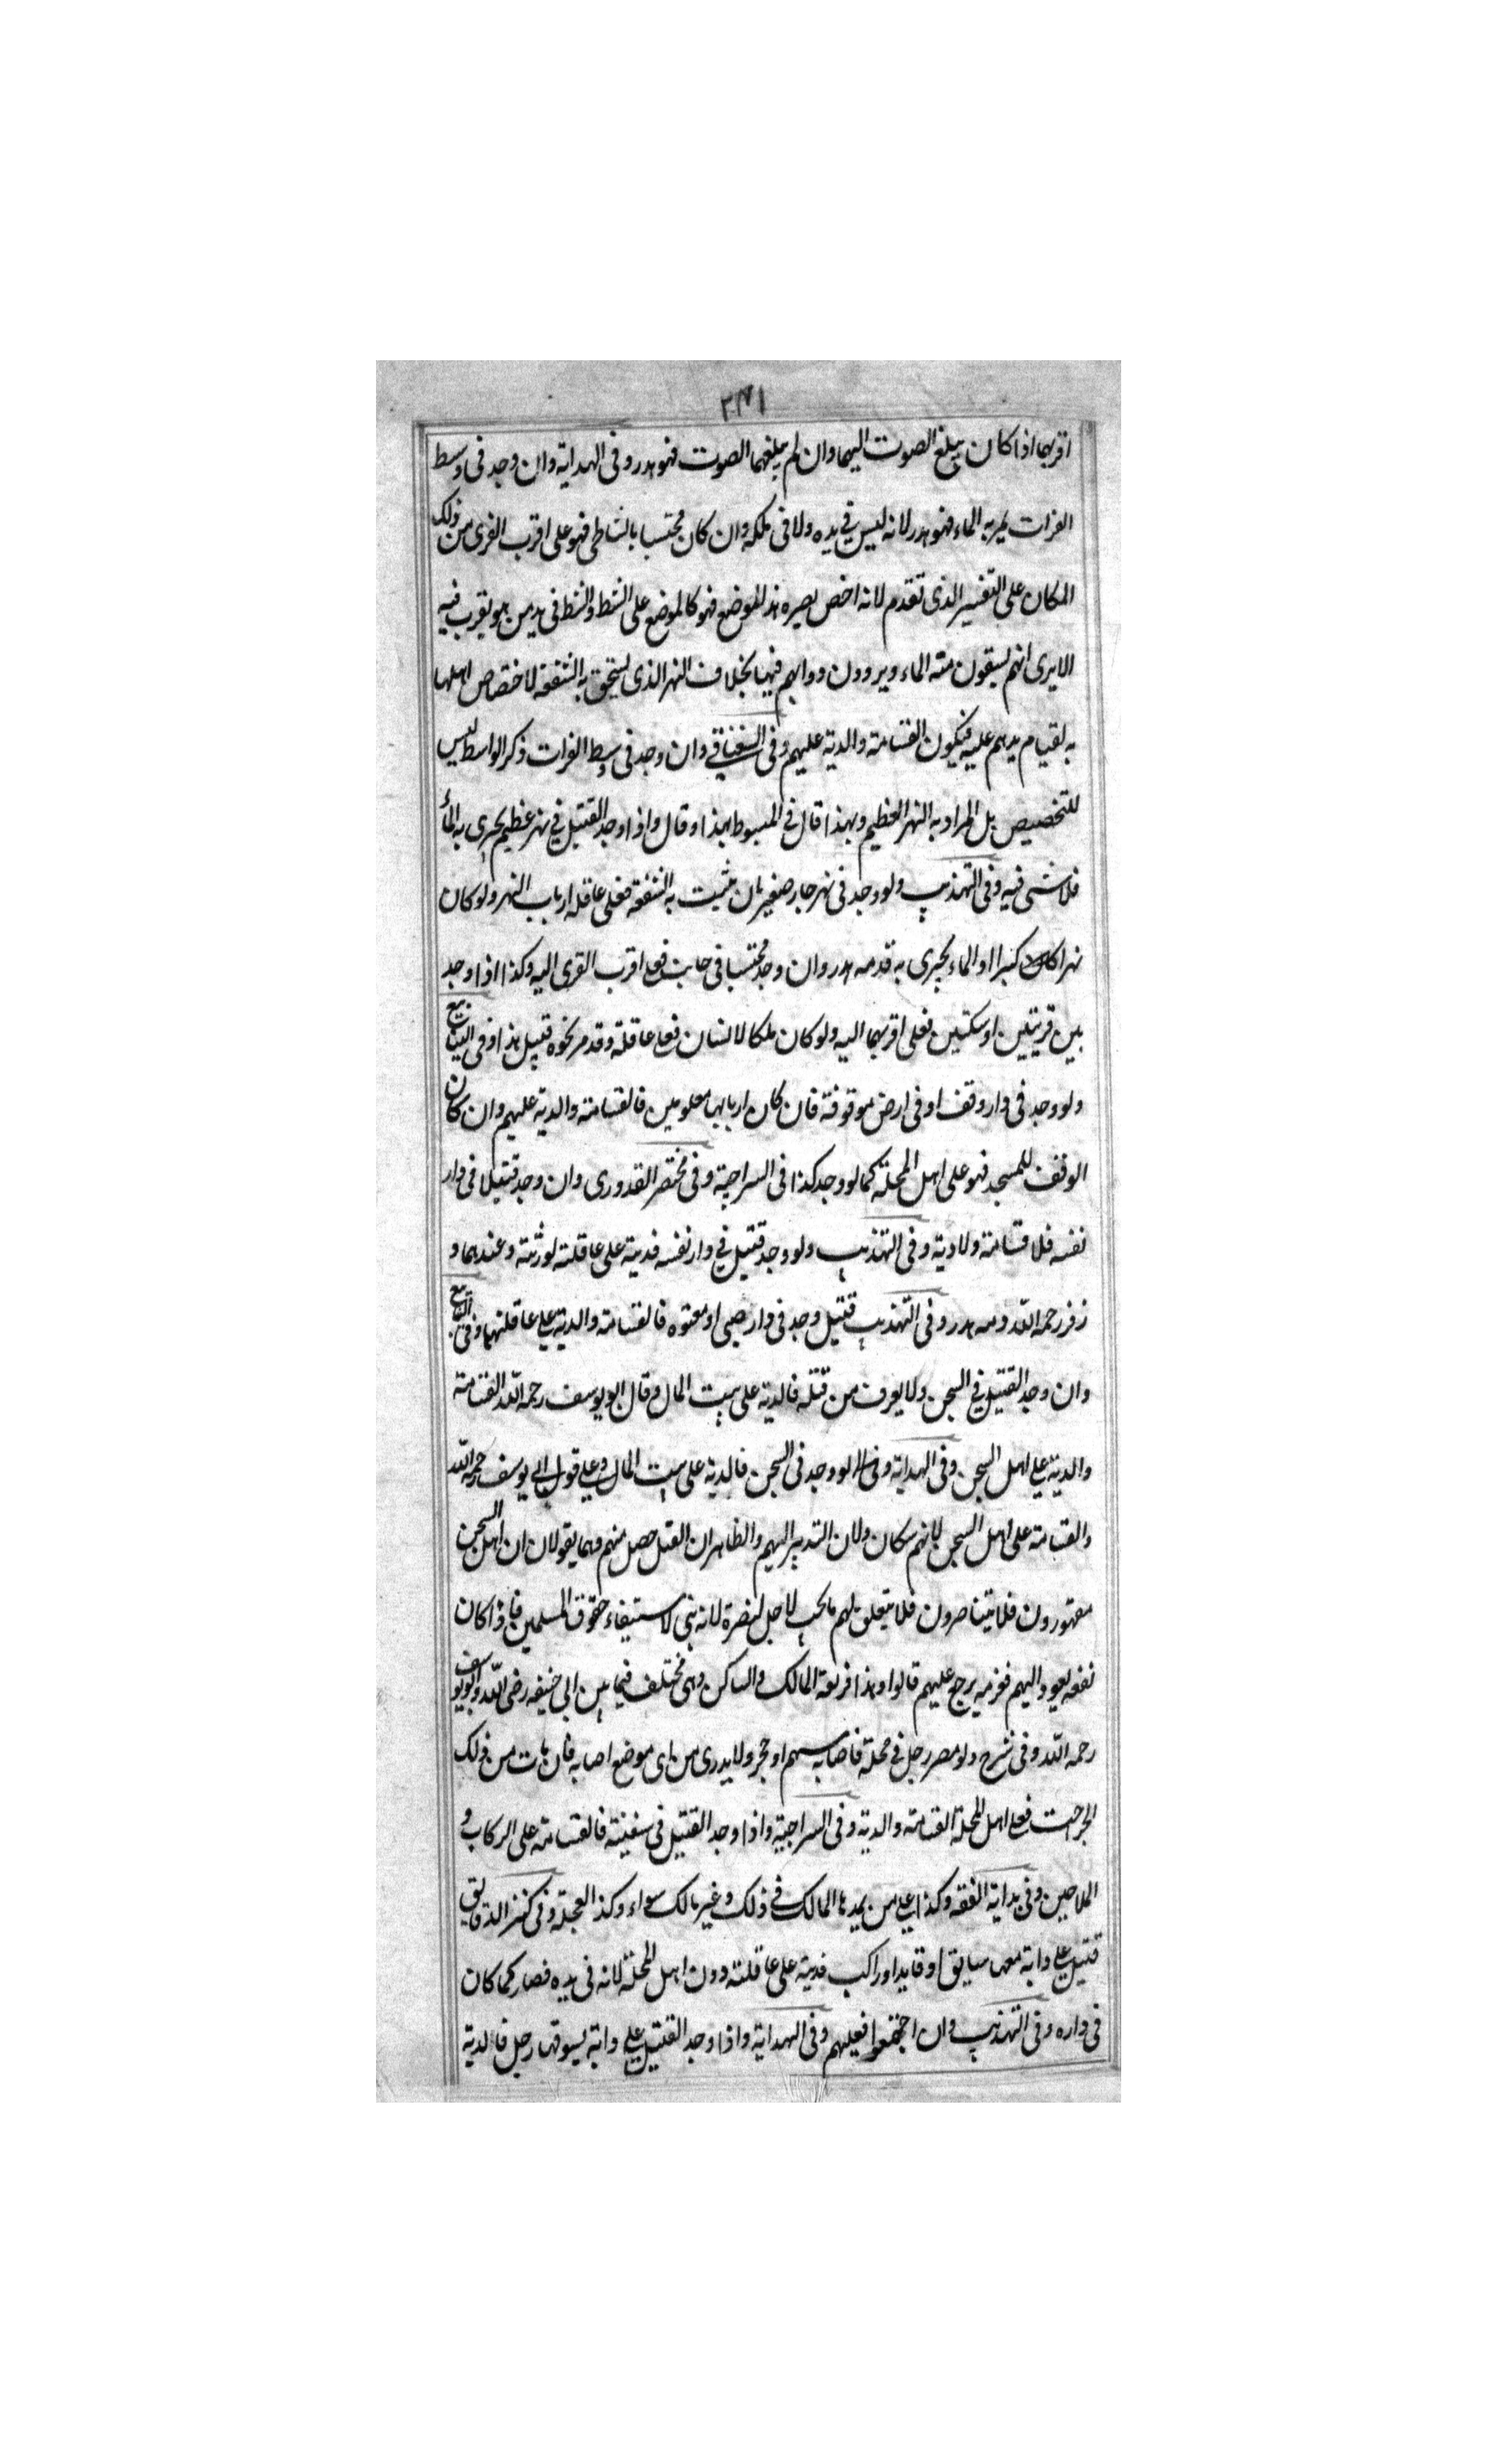 ٣٧١
اقربهما اذا كان يبلغ الصوت اليهما وان لم يبلغهما الصوت فهو هدر وفى الهداية وان وجد فى وسط
الفرات يمر به الماء فهو هدر لانه ليس في يده ولا فى ملكه وان كان محتسبا بالشاطى فهو على اقرب القرى من ذلك
المكان على التفسير الذى تقدم لانه اخص بصيره هذا الموضع فهو كالموضع على الشط والشط فى يد من هو يقرب فيه
الا يرى انهم يسقون منه الماء ويروون دوابهم فيها بخلاف النهر الذى يستحق به الشفعة لاختصاص اهلها
به لقيام يدهم عليه فيكون القسامة والدية عليهم وفى السغناقي وان وجد فى وسط الفرات ذكر الواسط ليس
للتخصيص بل المراد به النهر العظيم وبهذا قال في المبسوط بهذا وقال واذا وجد القتيل في نهر عظيم يجرى به الماء
فلا شى فيه وفى التهذيب ولو وجد فى نهر جار صغير بان يثبت به الشفعة فعلى عاقلة ارباب النهر ولو كان
نهرا كبيرا والماء يجرى به قدمه هدر وان وجد محتبسا فى جانب فعلى اقرب القرى اليه وكذا اذا وجد
بين قريتين او سكتين فعلى اقربهما اليه ولو كان ملكا لانسان فعلى عاقلته وقد مر نحوه قبيل هذا وفى الينابيع
ولو وجد فى دار وقف او فى ارض موقوفة فان كان اربابها معلومين فالقسامة والدية عليهم وان كان
الوقف للمسجد فهو على اهل المحلة كما لو وجد كذا فى السراجية وفى مختصر القدورى وان وجد قتيلا فى دار
نفسه فلا قسامة ولا دية وفى التهذيب ولو وجد قتيل في دار نفسه فدية على عاقلته لورثته وعندهما و
زفر رحمه الله دمه هدر وفى التهذيب قتيل وجد فى دار صبى او معتوه فالقسامة والدية على عاقلتهما وفى الينابيع
وان وجد القتيل في السجن ولا يعرف من قتله فالدية على بيت المال وقال ابو يوسف رحمه الله القسامة
والدية على اهل السجن وفى الهداية ولو وجد فى السجن فالدية على بيت المال وعلى قول ابى يوسف رحمه الله
والقسامة على اهل السجن لانهم سكان ولان التدبير اليهم والظاهر ان القتل حصل منهم وهما يقولان ان اهل السجن
مقهورون فلا يتناصرون فلا يتعلق بهم ما يجب لاجل النصرة لانه بنى لاستيفاء حقوق المسلمين فاذا كان
نفعه يعود اليهم فغرمه يرجع عليهم قالوا وهذا فريعة المالك والساكن وهى مختلف فيما بين ابى حنيفه رضى الله وابو يوسف
رحمه الله وفى شرح ولو مصر رجل في محلة فاصابه سهم او حجر ولا يدرى من اى موضع اصابه فان مات من ذلك
الجراحت فعلى اهل المحلة القسامة والدية وفى السراجية واذا وجد القتيل فى سفينة فالقسامة على الركاب و
الملاحين وفى بداية الفقه وكذا على من يمدها المالك في ذلك وغير مالك سواء وكذا العجلة وفى كنز الدقايق
قتيل على دابة معها سايق او قايد او راكب فدية على عاقلته دون اهل المحلة لانه فى يده فصار كما كان
فى داره وفى التهذيب وان اجتمعوا فعليهم وفى الهداية واذا وجد القتيل على دابة يسوقها رجل فالدية